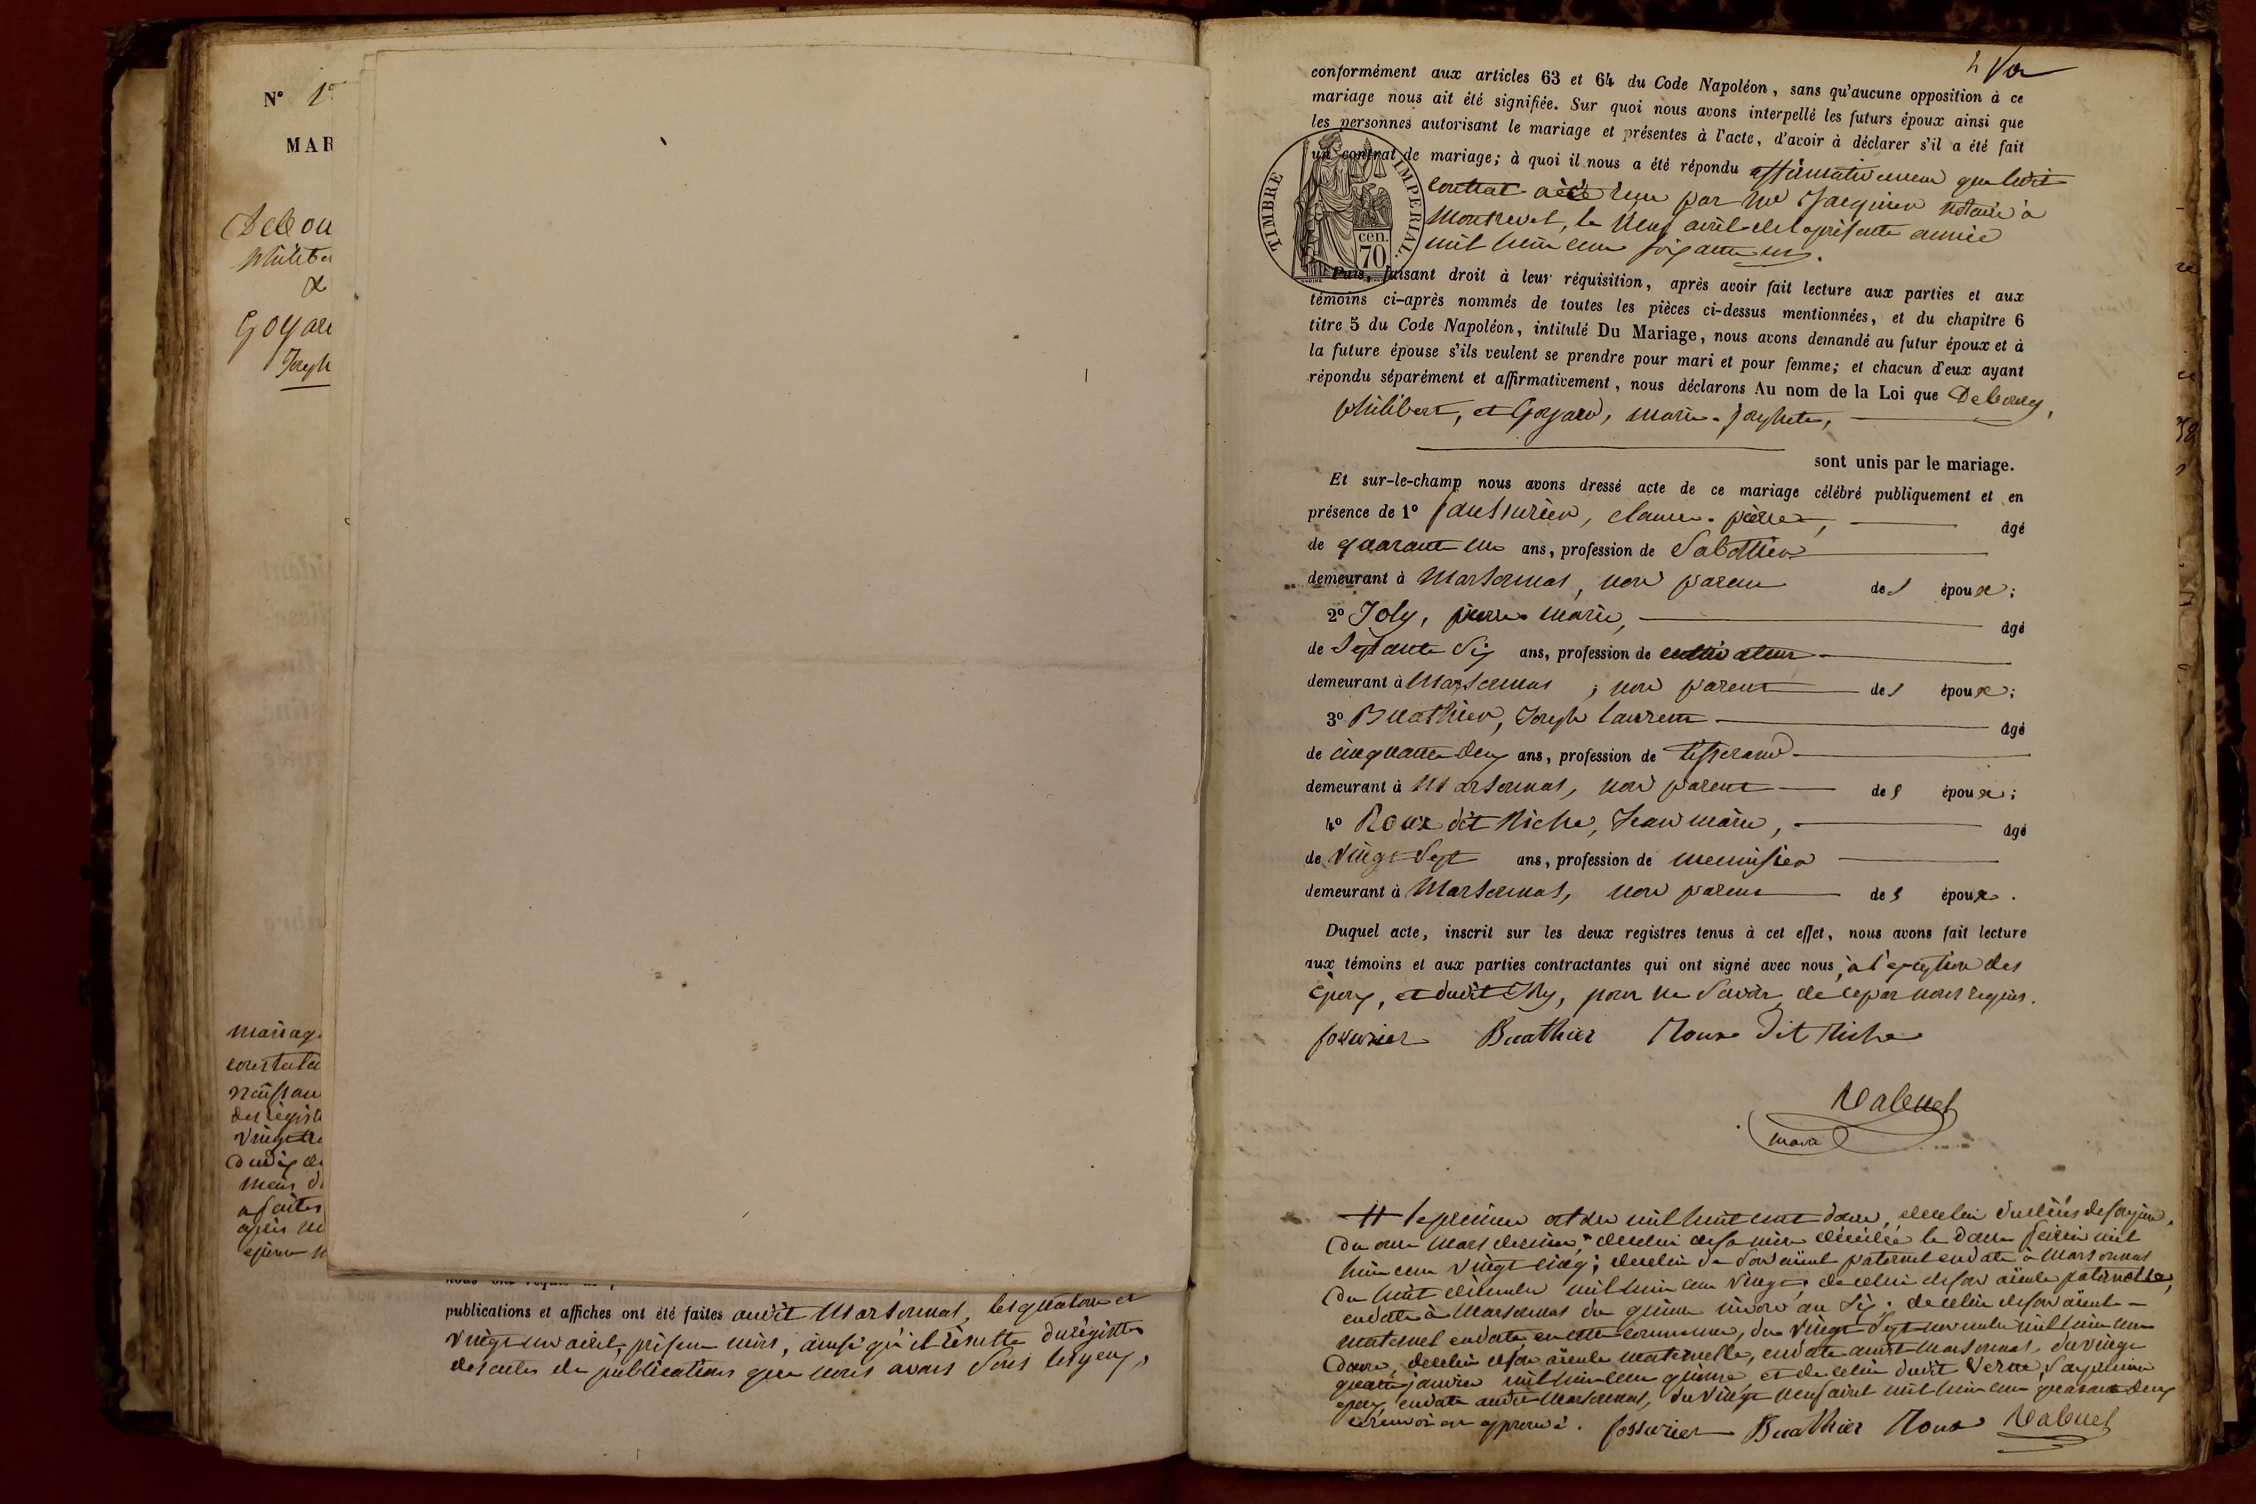 N° 1
MAR
Debou
Philiber
&
Goyar
Joseph
mariag
constata
naissan
des regist
vingt
mars d
a faites
publications et affiches ont été faites audit Marsonnas, les quatorze et
vingt un avril, présent mois, ainsi qu'il résulte du registre
des actes de publications que nous avons sous les yeux,
conformément aux articles 63 et 64 du Code Napoléon, sans qu'aucune opposition à ce
mariage nous ait été signifiée. Sur quoi nous avons interpellé les futurs époux ainsi que
les personnes autorisant le mariage et présentes à l'acte, d'avoir à déclarer s'il a été fait
un contrat de mariage; à quoi il nous a été répondu affirmativement que ledit
contrat a été reçu par Me notaire à
Montrevel, le neuf avril de la présente année
mil huit cent soixante un.
TIMBRE IMPERIAL
70 cen.
Puis, faisant droit à leur réquisition, après avoir fait lecture aux parties et aux
témoins ci-après nommés de toutes les pièces ci-dessus mentionnées, et du chapitre 6
titre 5 du Code Napoléon, intitulé Du Mariage, nous avons demandé au futur époux et à
la future épouse s'ils veulent se prendre pour mari et pour femme; et chacun d'eux ayant
répondu séparément et affirmativement, nous déclarons Au nom de la Loi que Debourg,
Philibert, et Goyard, Marie-Josephte,
sont unis par le mariage.
Et sur-le-champ nous avons dressé acte de ce mariage célébré publiquement et en
présence de 1° claude-pierre, âgé
de quarante un ans, profession de Sabottier
demeurant à Marsonnas, non parent des époux;
2° Joly, pierre marie, âgé
de Septante Six ans, profession de cultivateur
demeurant à Marsonnas, non parent des époux;
3° Buathier, Joseph Laurent âgé
de cinquante deux ans, profession de tisserand
demeurant à Marsonnas, non parent des époux;
4° Roux dit Niche, Jean marie, âgé
de vingt Sept ans, profession de menuisier
demeurant à Marsonnas, non parent des époux.
Duquel acte, inscrit sur les deux registres tenus à cet effet, nous avons fait lecture
aux témoins et aux parties contractantes qui ont signé avec nous, à l'exception des
époux, et dudit Joly, pour ne Savoir, de ce par nous requis.
fossurier Buathier Roux dit Niche
Valenet
maire
le premier mil huit cent douze, de celui du décès de son père,
du onze mars dernier, de celui de sa mère décédée le douze février mil
huit cent vingt cinq; de celui de Son aïeul paternel en date à Marsonnas
du huit décembre mil huit cent vingt, de celui de son aïeule paternelle,
en date à Marsonnas du quinze nivose an Six; de celui de son aïeul
maternel en date en cette commune, du vingt Sept novembre mil huit cent
douze, de celui de son aïeule maternelle, en date audit Marsonnas, du vingt
quatre janvier mil huit cent quinze, et de celui dudit Verne, Son premier
époux, en date audit Marsonnas, du vingt neuf avril mil huit cent quarante deux
ce renvoi est approuvé. fossurier Buathier Roux Valenet